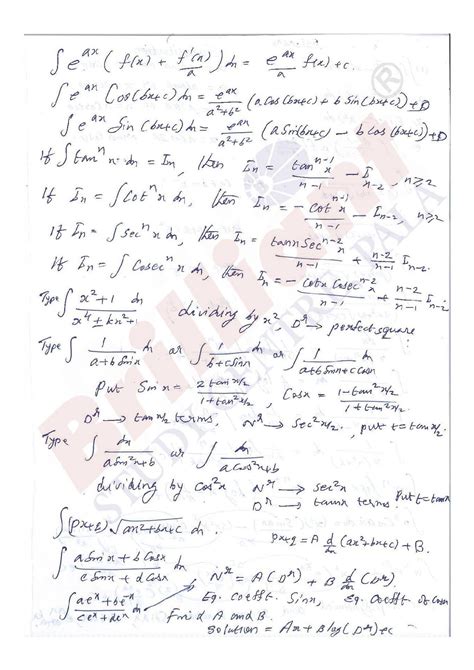 ∫ e^{ax} ( f(x) + f'(x)/a ) dx = e^{ax}/a f(x) + c.
∫ e^{ax} Cos(bx+c) dx = e^{ax}/(a²+b²) (a Cos(bx+c) + b Sin(bx+c)) + D
∫ e^{ax} Sin(bx+c) dx = e^{ax}/(a²+b²) (a Sin(bx+c) - b Cos(bx+c)) + D
If ∫ tan^n x dx = I_n, then I_n = tan^{n-1} x/(n-1) - I_{n-2}, n≥2
If I_n = ∫ Cot^n x dx, then I_n = - Cot^{n-1} x/(n-1) - I_{n-2}, n≥2
If I_n = ∫ Sec^n x dx, then I_n = tanx Sec^{n-2} x/(n-1) + (n-2)/(n-1) I_{n-2}
If I_n = ∫ Cosec^n x dx, then I_n = - Cotx Cosec^{n-2} x/(n-1) + (n-2)/(n-1) I_{n-2}
Type ∫ (x²+1)/(x⁴ ± kx² + 1) dx dividing by x², D^r → perfect square
Type ∫ 1/(a+b Sinx) dx or ∫ 1/(b+c Sinx) dx or ∫ 1/(a+b Sinx+c Cosx) dx
Put Sinx = 2 tan x/2/(1+tan² x/2), Cosx = (1-tan² x/2)/(1+tan² x/2)
D^r → tan x/2 terms, N^r → Sec² x/2, put t = tan x/2
Type ∫ dx/(a Sin²x+b) or ∫ dx/(a Cos²x+b)
dividing by Cos²x N^r → Sec²x
D^r → tanx terms. Put t=tanx
∫ (px+q) √(ax²+bx+c) dx. px+q = A d/dx (ax²+bx+c) + B.
∫ (a Sinx + b Cosx)/(c Sinx + d Cosx) N^r = A(D^r) + B d/dx (D^r).
∫ (ae^x + be^{-x})/(ce^x + de^{-x}) Eq. Coefft. Sinx, Eq. Coefft of Cosx
Find A and B.
Solution = Ax + B log(D^r) + c
Brilliant
STUDY CENTRE PALA
®